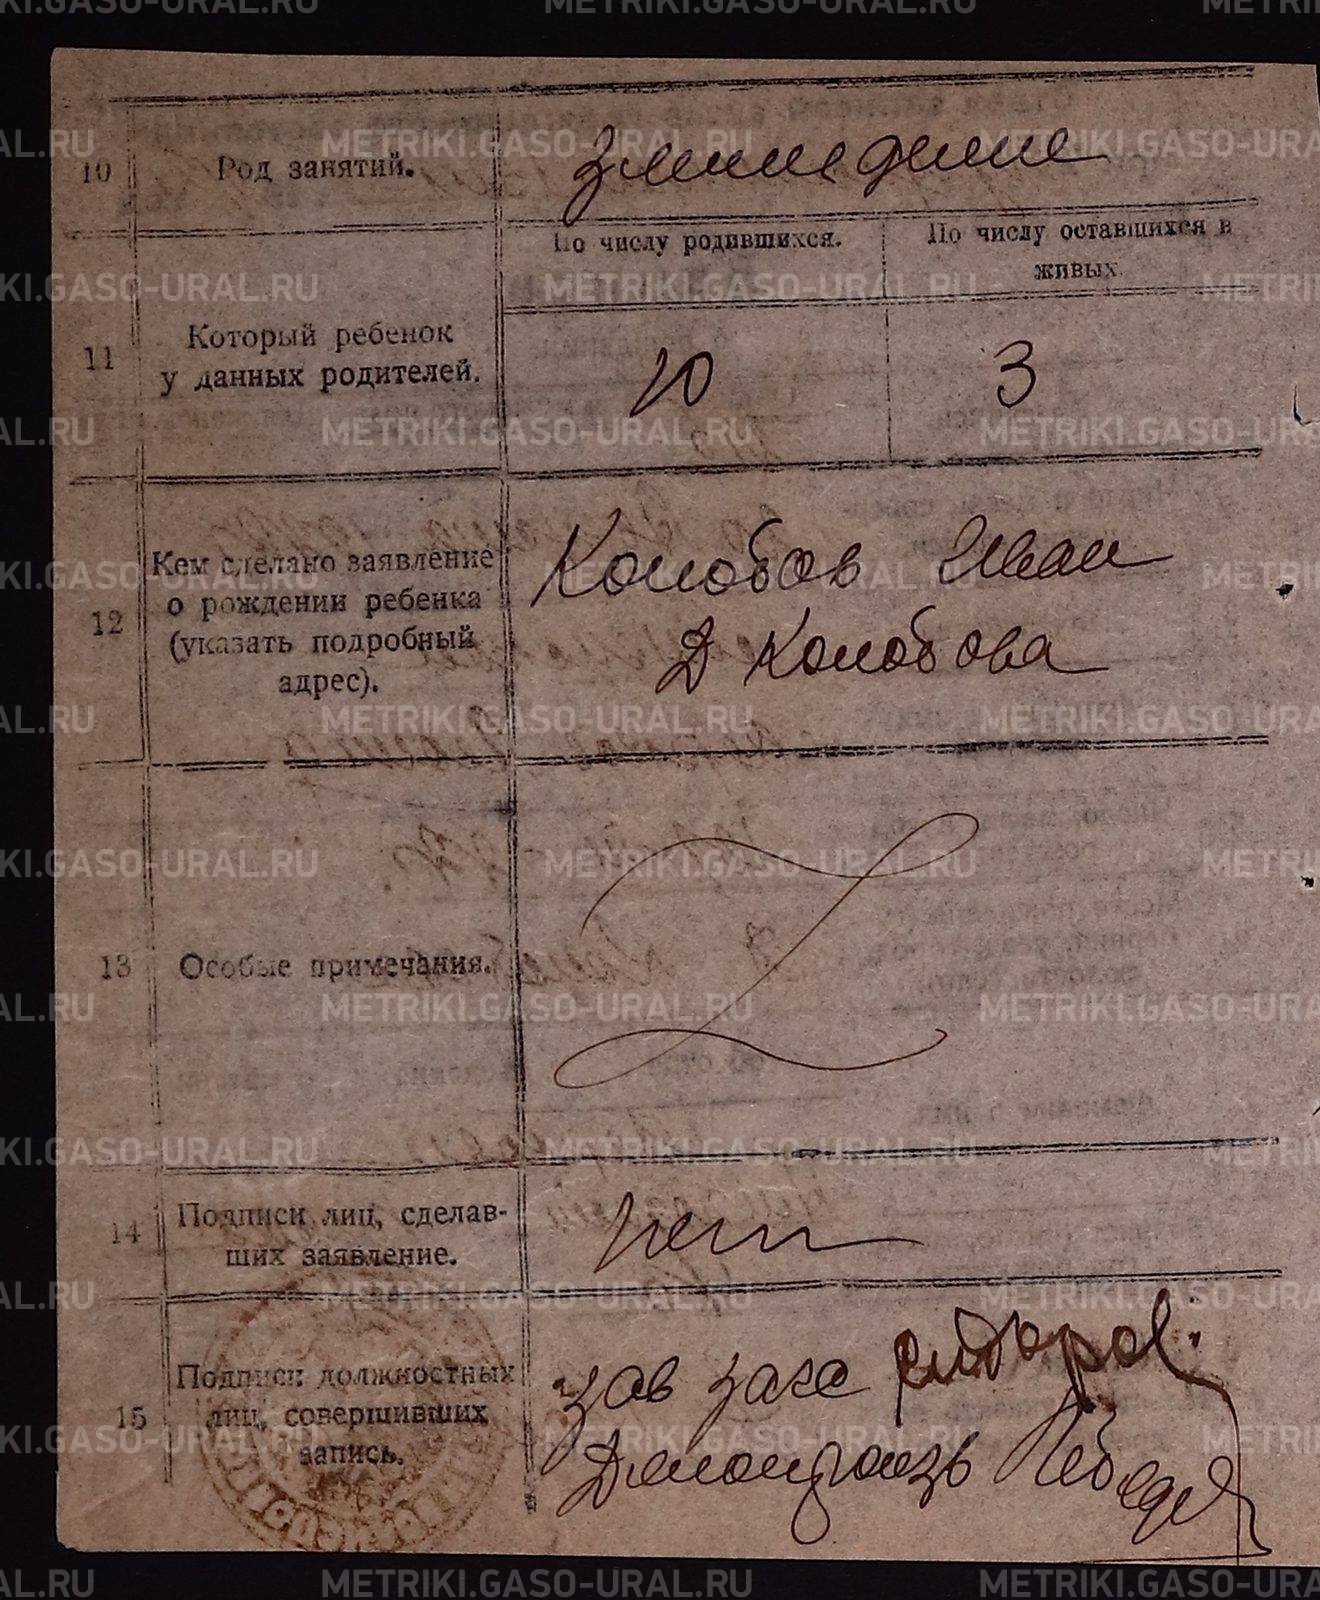 10 Род занятий. земледелие
11 Который ребенок
у данных родителей.
По числу родившихся.
По числу оставшихся в
живых.
10
3
12 Кем сделано заявление
о рождении ребенка
(указать подробный
адрес).
Колобов Иван
Д Колобова
13 Особые примечания.
14 Подписи лиц, сделав-
ших заявление.
нет
15 Подписи должностных
лиц, совершивших
запись.
зав загс
Делопроизв
METRIKI.GASO-URAL.RU